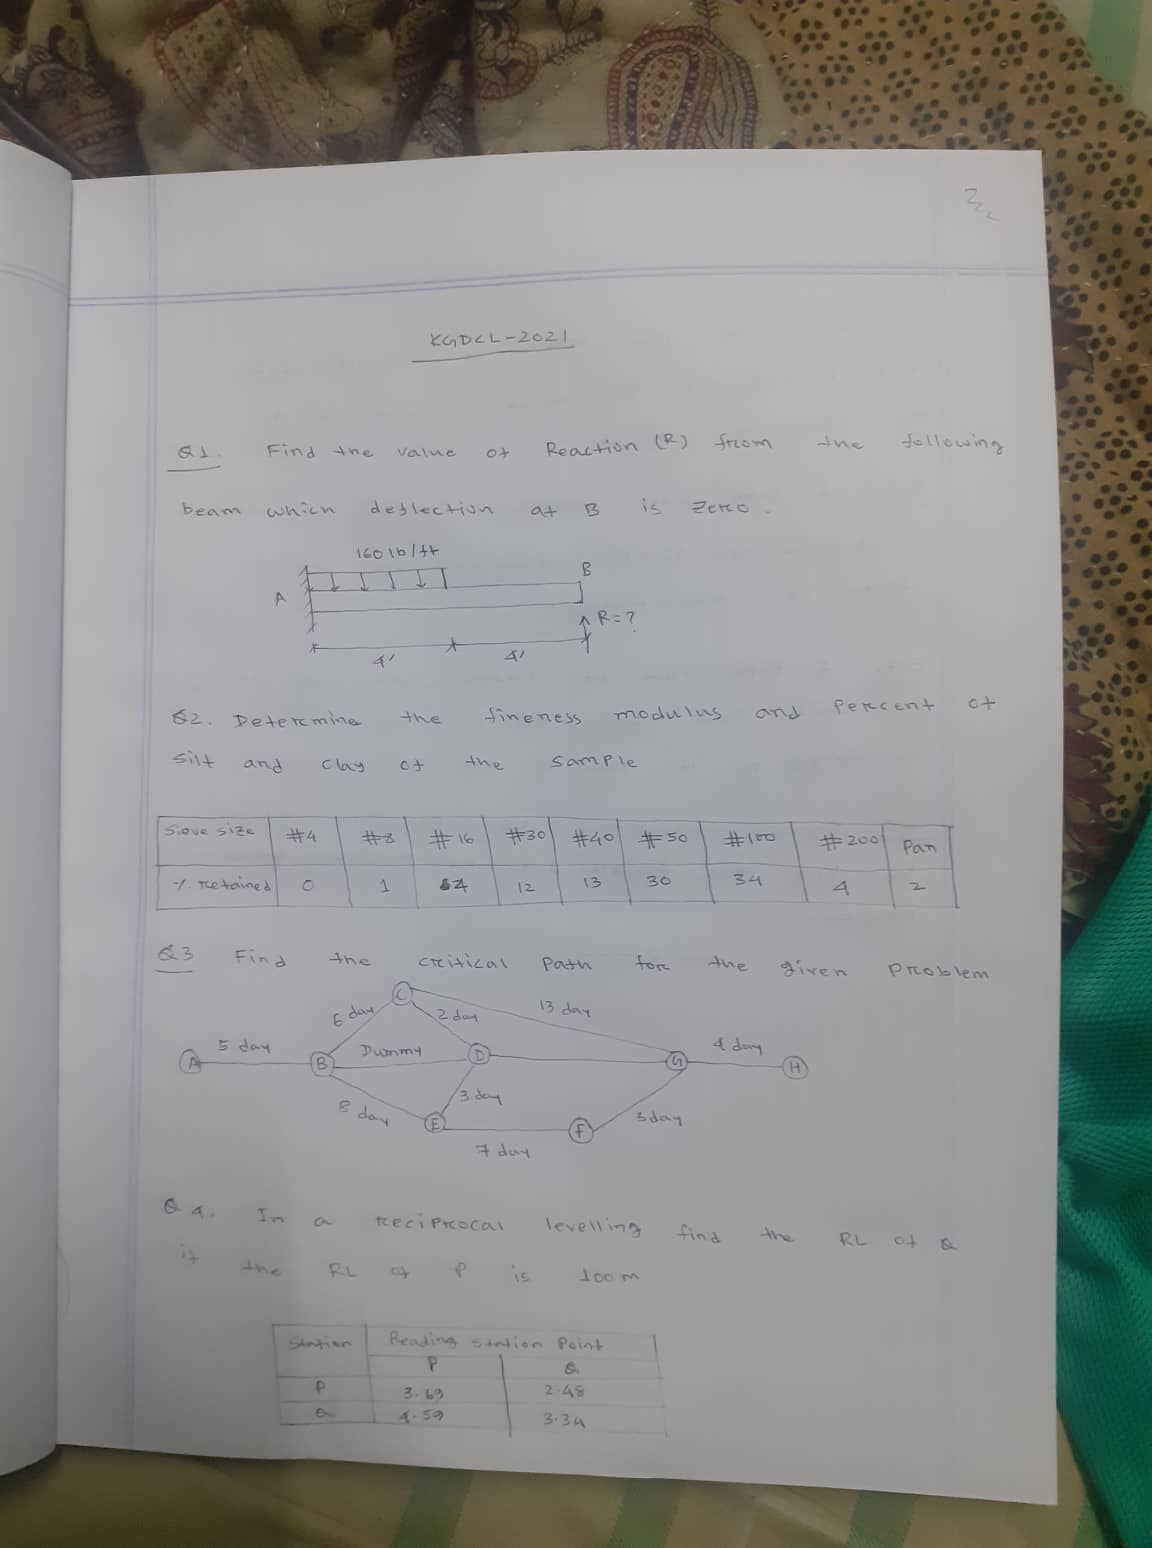 KGDCL-2021
Q1. Find the value of Reaction (R) from the following
beam which deflection at B is zero.
160 lb/ft
A
B
R=?
4'
4'
Q2. Determine the fineness modulus and percent of
silt and clay of the sample
Sieve size #4 #8 #16 #30 #40 #50 #100 #200 Pan
% retained 0 1 4 12 13 30 34 4 2
Q3 Find the critical path for the given problem
C
6 day
2 day
13 day
A
5 day
B
Dummy
D
G
4 day
H
8 day
3 day
E
F
3 day
7 day
Q4. In a reciprocal levelling find the RL of Q
if the RL of P is 100 m
Station Reading station Point
P Q
P 3.69 2.48
Q 4.59 3.34